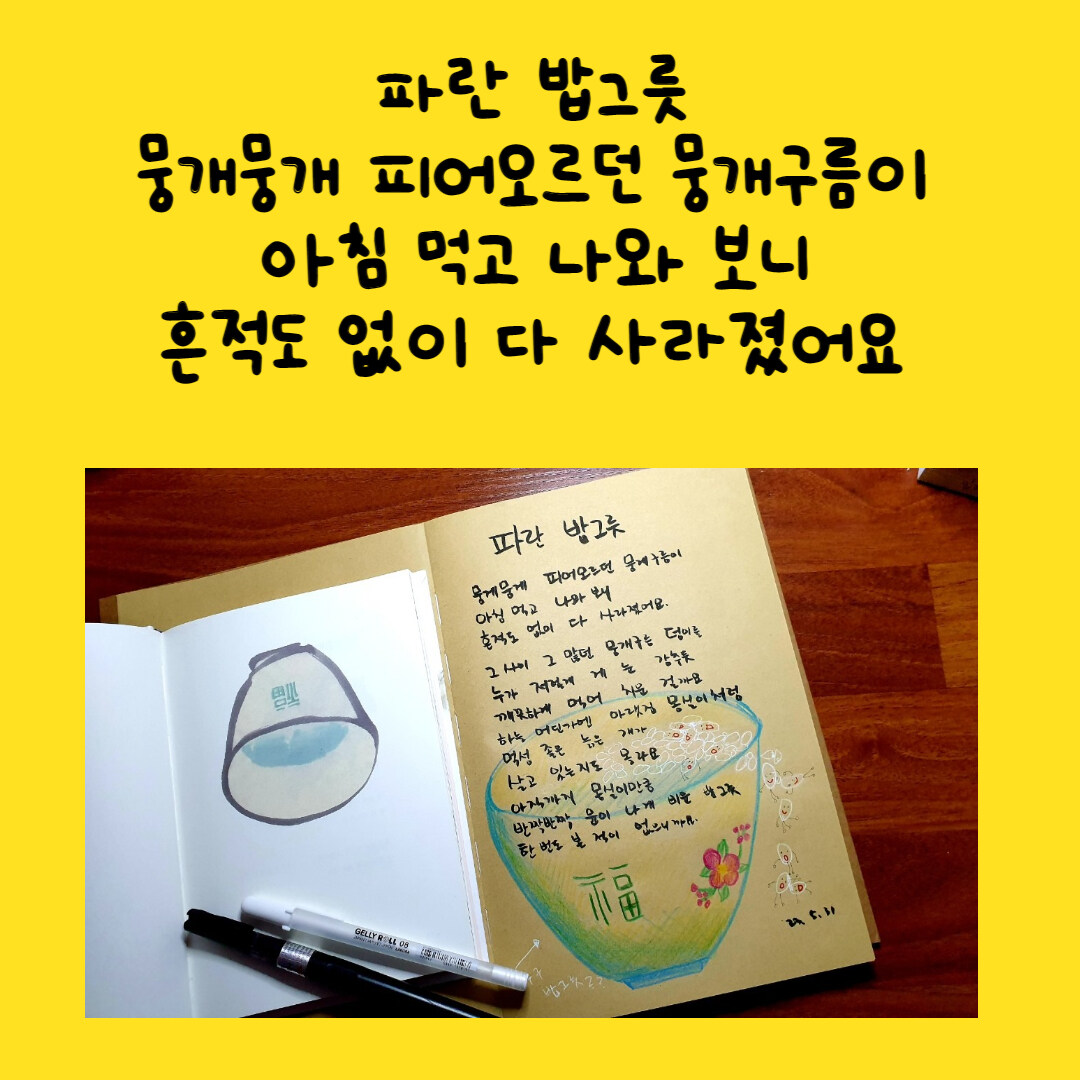 파란 밥그릇
뭉개뭉개 피어오르던 뭉개구름이
아침 먹고 나와 보니
흔적도 없이 다 사라졌어요
파란 밥그릇
뭉게뭉게 피어오르던 뭉게구름이
아침 먹고 나와 보니
흔적도 없이 다 사라졌어요.
그 사이 그 많던 뭉개구름 덩이를
누가 저렇게 게 눈 감추듯
깨끗하게 먹어 치운 걸까요
하늘 어딘가에 아랫집 몽실이처럼
먹성 좋은 늙은 개가
살고 있는지도 몰라요
아직까지 몽실이만큼
반짝반짝 윤이 나게 비운 밥그릇
한 번도 본 적이 없으니까요.
福
福
GELLY ROLL 08
밥그릇
5.31